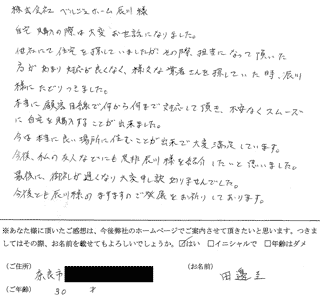 株式会社 ベルシェホーム 辰川 様
自宅 購入の際は大変 お世話になりました。
他社にて住宅を探していましたが、その際、担当になって頂いた
方があまり対応が良くなく、様々な業者さんを探していた時、辰川
様にたどりつきました。
本当に顧客目線で何から何まで対応して頂き、不安なくスムーズ
に自宅を購入することが出来ました。
今は本当に良い場所に住むことが出来て大変満足しています。
今後、私の友人などにも是非辰川様を紹介したいと思いました。
最後に、御礼が遅くなり大変申し訳ありませんでした。
今後とも辰川様のますますのご発展をお祈りしております。
※あなた様に頂いたご感想は、今後弊社のホームページでご案内させて頂きたいと思います。つき
ましてはその際、お名前を載せてもよろしいでしょうか。☑はい □イニシャルで □年齢はダメ
(ご住所) (お名前)
奈良市 田邊 圭
(ご年齢) 30 才